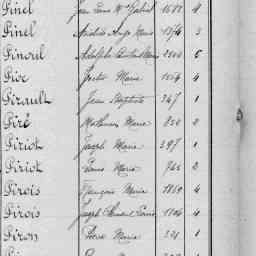 Pinel Jean Louis Mie Gabriel 1588 4
Pinel Aristide Ange Marie 1374 3
Pinoul Adolphe 2500 6
Piot Marie 1554 4
Pirault Jean Baptiste 247 1
Piré Mathurin Marie 850 2
Piriot Joseph Marie 397 1
Piriot Louis Marie 765 2
Pirois François Marie 1869 4
Pirois Joseph Louis 1804 4
Piron Pierre Marie 321 1